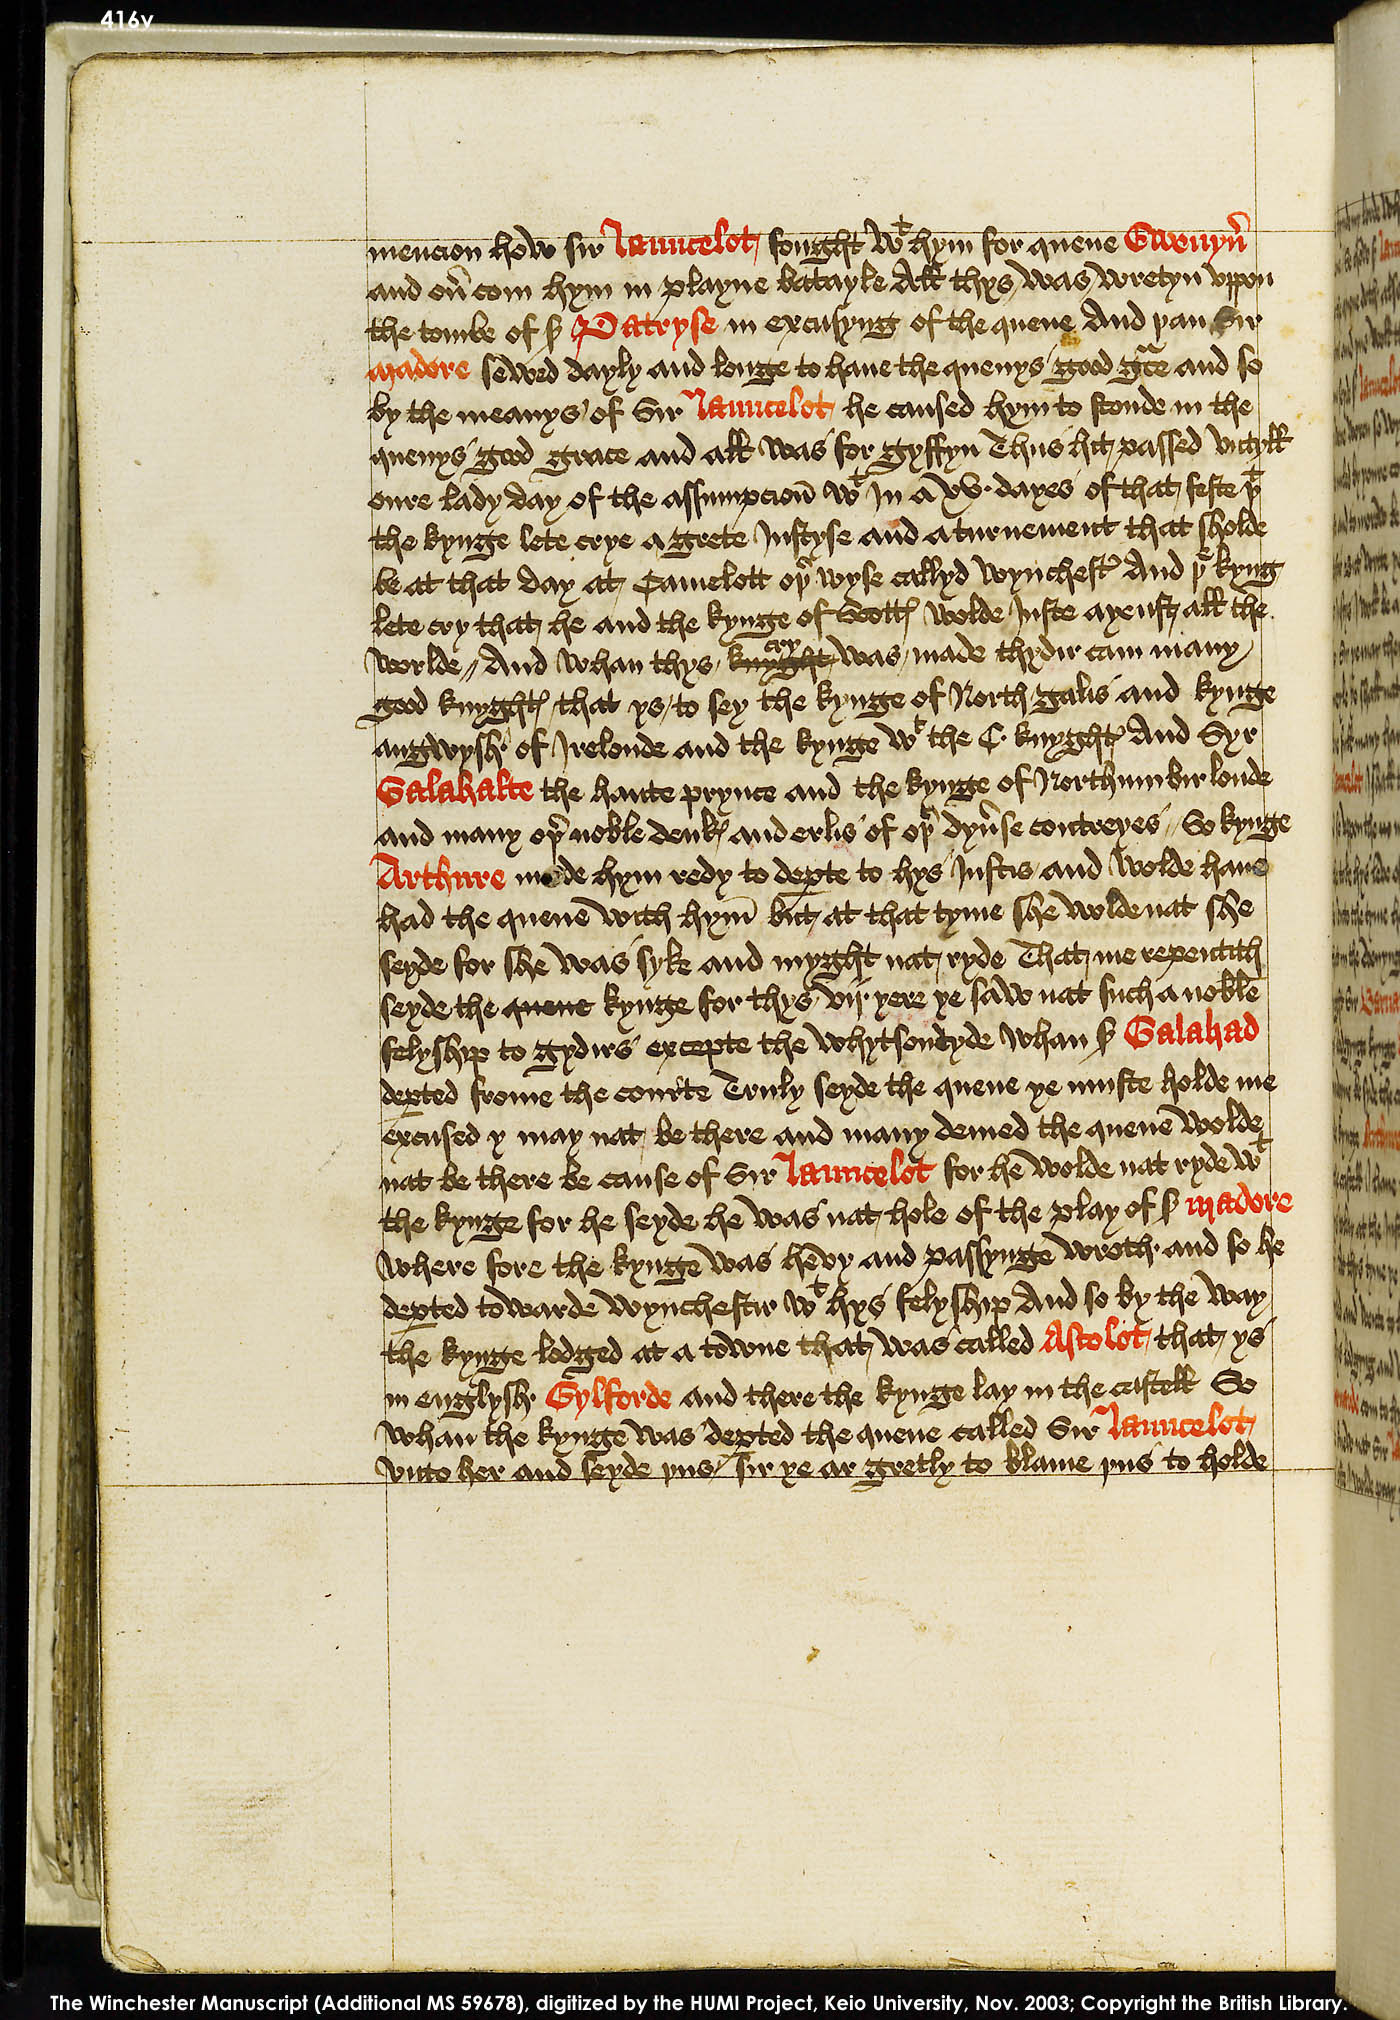 416v
mencion how sir Launcelot fought wt hym for quene Gwenyũ
and oũ com hym in playne batayle All thys was wretyn vppon
the tombe of sʳ Patryse in excusyng of the quene And þan Sir
Madore sewed dayly and longe to haue the quenys good gᵃce and so
by the meanys of Sir Launcelot he caused hym to stonde in the
quenys good grace and all was for gyffyn Thus hit passed vntyll
oure lady day of the assumpcioñ wt In a xv. dayes of that feste þt
the kynge lete crye a grete Justyse and a turnement that sholde
be at that day at Camelott oþʳ wyse callyd Wynchestʳ And þe kyng
lete cry that he and the kynge of Scottꝭ wolde Juste ayenst all the
worlde // And whan thys knyght cry was made thydir cam many
good knyghtꝭ that ys to sey the kynge of North galis and kynge
angwysh of Irelonde and the kynge wt the C. knyghtꝭ And Syr
Galahalte the haute prynce and the kynge of Northumbir londe
and many oþʳ noble deukꝭ and erlis of oþʳ dyũse contreyes // So kynge
Arthure made hym redy to deꝑte to hys Justis and wolde haue
had the quene with hym but at that tyme she wolde nat she
seyde for she was syke and myght nat ryde That me repentith
seyde the quene kynge for thys vij yere ye saw nat such a noble
felyship to gydirs excepte the Whytsontyde whan sʳ Galahad
deꝑted frome the courte Truly seyde the quene ye muste holde me
excused y may nat be there and many demed the quene wolde
nat be there be cause of Sir Launcelot for he wolde nat ryde wt
the kynge for he seyde he was nat hole of the play of sʳ Madore
where fore the kynge was hevy and passynge wroth and so he
deꝑted towarde Wynchestir wt hys felyship And so by the way
the kynge lodged at a towne that was called Astolot that ys
in englysh Gylforde and there the kynge lay in the castell So
whan the kynge was deꝑted the quene called Sir Launcelot
vnto her and seyde þus / sir ye ar gretly to blame þus to holde
The Winchester Manuscript (Additional MS 59678), digitized by the HUMI Project, Keio University, Nov. 2003; Copyright the British Library.